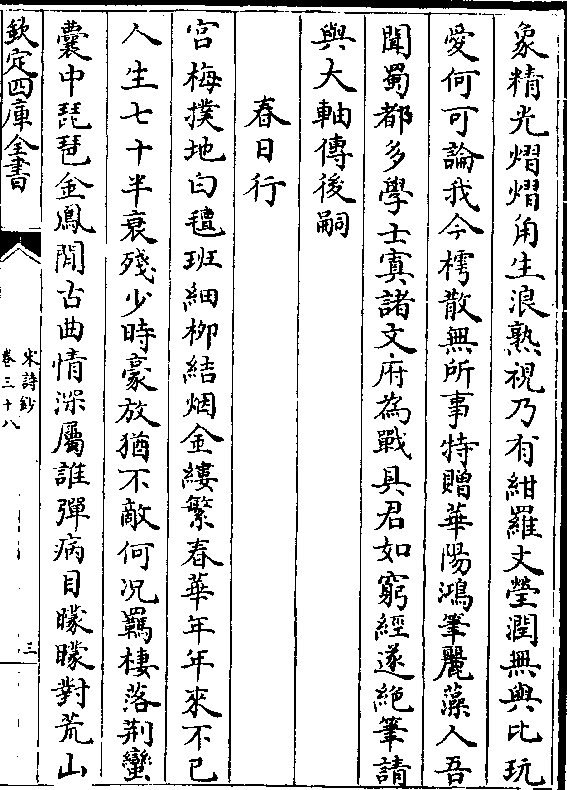 象精光熠熠角生浪熟視乃有紺羅文瑩潤無與比玩
愛何可論我今樗散無所事特贈華陽鴻筆麗藻人吾
聞蜀都多學士寘諸文府為戰具君如窮經遂絶筆請
與大軸傳後嗣
春日行
宮梅撲地白氊班細栁結烟金縷繁春華年年來不已
人生七十半衰殘少時豪放猶不敵何况羈棲落荆蠻
囊中琵琶金鳳閒古曲情深屬誰彈病目矇矇對荒山
欽定四庫全書
宋詩鈔
卷三十八
三